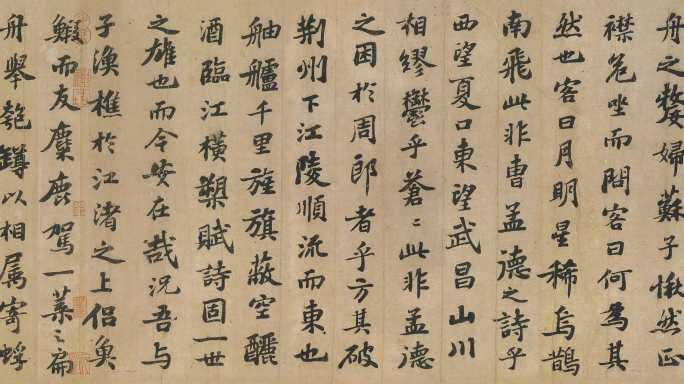 舟之嫠婦蘇子愀然正
襟危坐而問客曰何為其
然也客曰月明星稀烏鵲
南飛此非曹孟德之詩乎
西望夏口東望武昌山川
相繆鬱乎蒼〻此非孟德
之困於周郎者乎方其破
荊州下江陵順流而東也
舳艫千里旌旗蔽空釃
酒臨江橫槊賦詩固一世
之雄也而今安在哉況吾與
子漁樵於江渚之上侶魚
鰕而友麋鹿駕一葉之扁
舟舉匏罇以相屬寄蜉